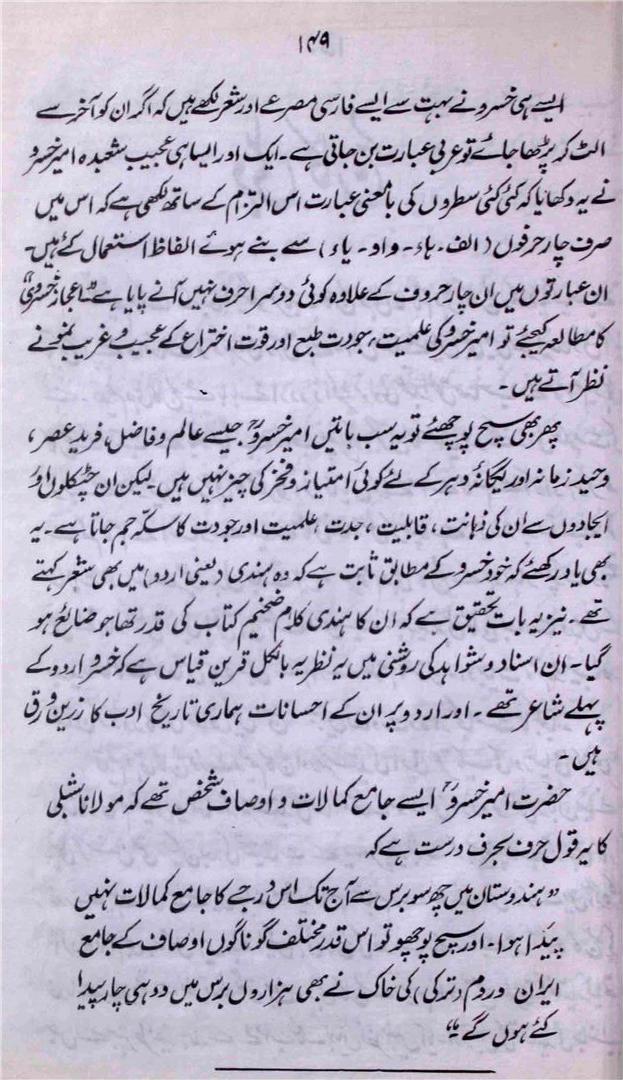 ۱۴۹
ایسے ہی خسرو نے بہت سے ایسے فارسی مصرعے اور شعر لکھے ہیں کہ اگر ان کو آخر سے
الٹ کر پڑھا جائے تو عربی عبارت بن جاتی ہے۔ ایک اور ایسا ہی عجیب شعبدہ امیر خسرو
نے یہ دکھایا کہ کئی کئی سطروں کی بامعنی عبارت اس التزام کے ساتھ لکھی ہے کہ اس میں
صرف چار حرفوں (الف۔ ہاء۔ واو۔ یاء) سے بنے ہوئے الفاظ استعمال کئے ہیں۔
ان عبارتوں میں ان چار حروف کے علاوہ کوئی دوسرا حرف نہیں آنے پایا ہے۔ "اعجاز خسروی"
کا مطالعہ کیجئے تو امیر خسرو کی علمیت، جودت طبع اور قوت اختراع کے عجیب و غریب نمونے
نظر آتے ہیں۔
پھر بھی سچ پوچھئے تو یہ سب باتیں امیر خسروؒ جیسے عالم و فاضل، فرید عصر،
وحید زمانہ اور یگانۂ دہر کے لئے کوئی امتیاز و فخر کی چیز نہیں ہیں۔ لیکن ان چٹکلوں اور
ایجادوں سے ان کی ذہانت، قابلیت، جدت، علمیت اور جودت کا سکّہ جم جاتا ہے۔ یہ
بھی یاد رکھئے کہ خود خسرو کے مطابق ثابت ہے کہ وہ ہندی (یعنی اردو) میں بھی شعر کہتے
تھے۔ نیز یہ بات تحقیق ہے کہ ان کا ہندی کلام ضخیم کتاب کی قدر تھا جو ضائع ہو
گیا۔ ان اسناد و شواہد کی روشنی میں یہ نظریہ بالکل قرین قیاس ہے کہ خسرو اردو کے
پہلے شاعر تھے۔ اور اردو پر ان کے احسانات ہماری تاریخ ادب کا زرین ورق
ہیں۔
حضرت امیر خسروؒ ایسے جامع کمالات و اوصاف شخص تھے کہ مولانا شبلی
کا یہ قول حرف بحرف درست ہے کہ
"ہندوستان میں چھ سو برس سے آج تک اس درجے کا جامع کمالات نہیں
پیدا ہوا۔ اور سچ پوچھو تو اس قدر مختلف گوناگوں اوصاف کے جامع
ایران و روم (ترکی) کی خاک نے بھی ہزاروں برس میں دو ہی چار پیدا
کئے ہوں گے"